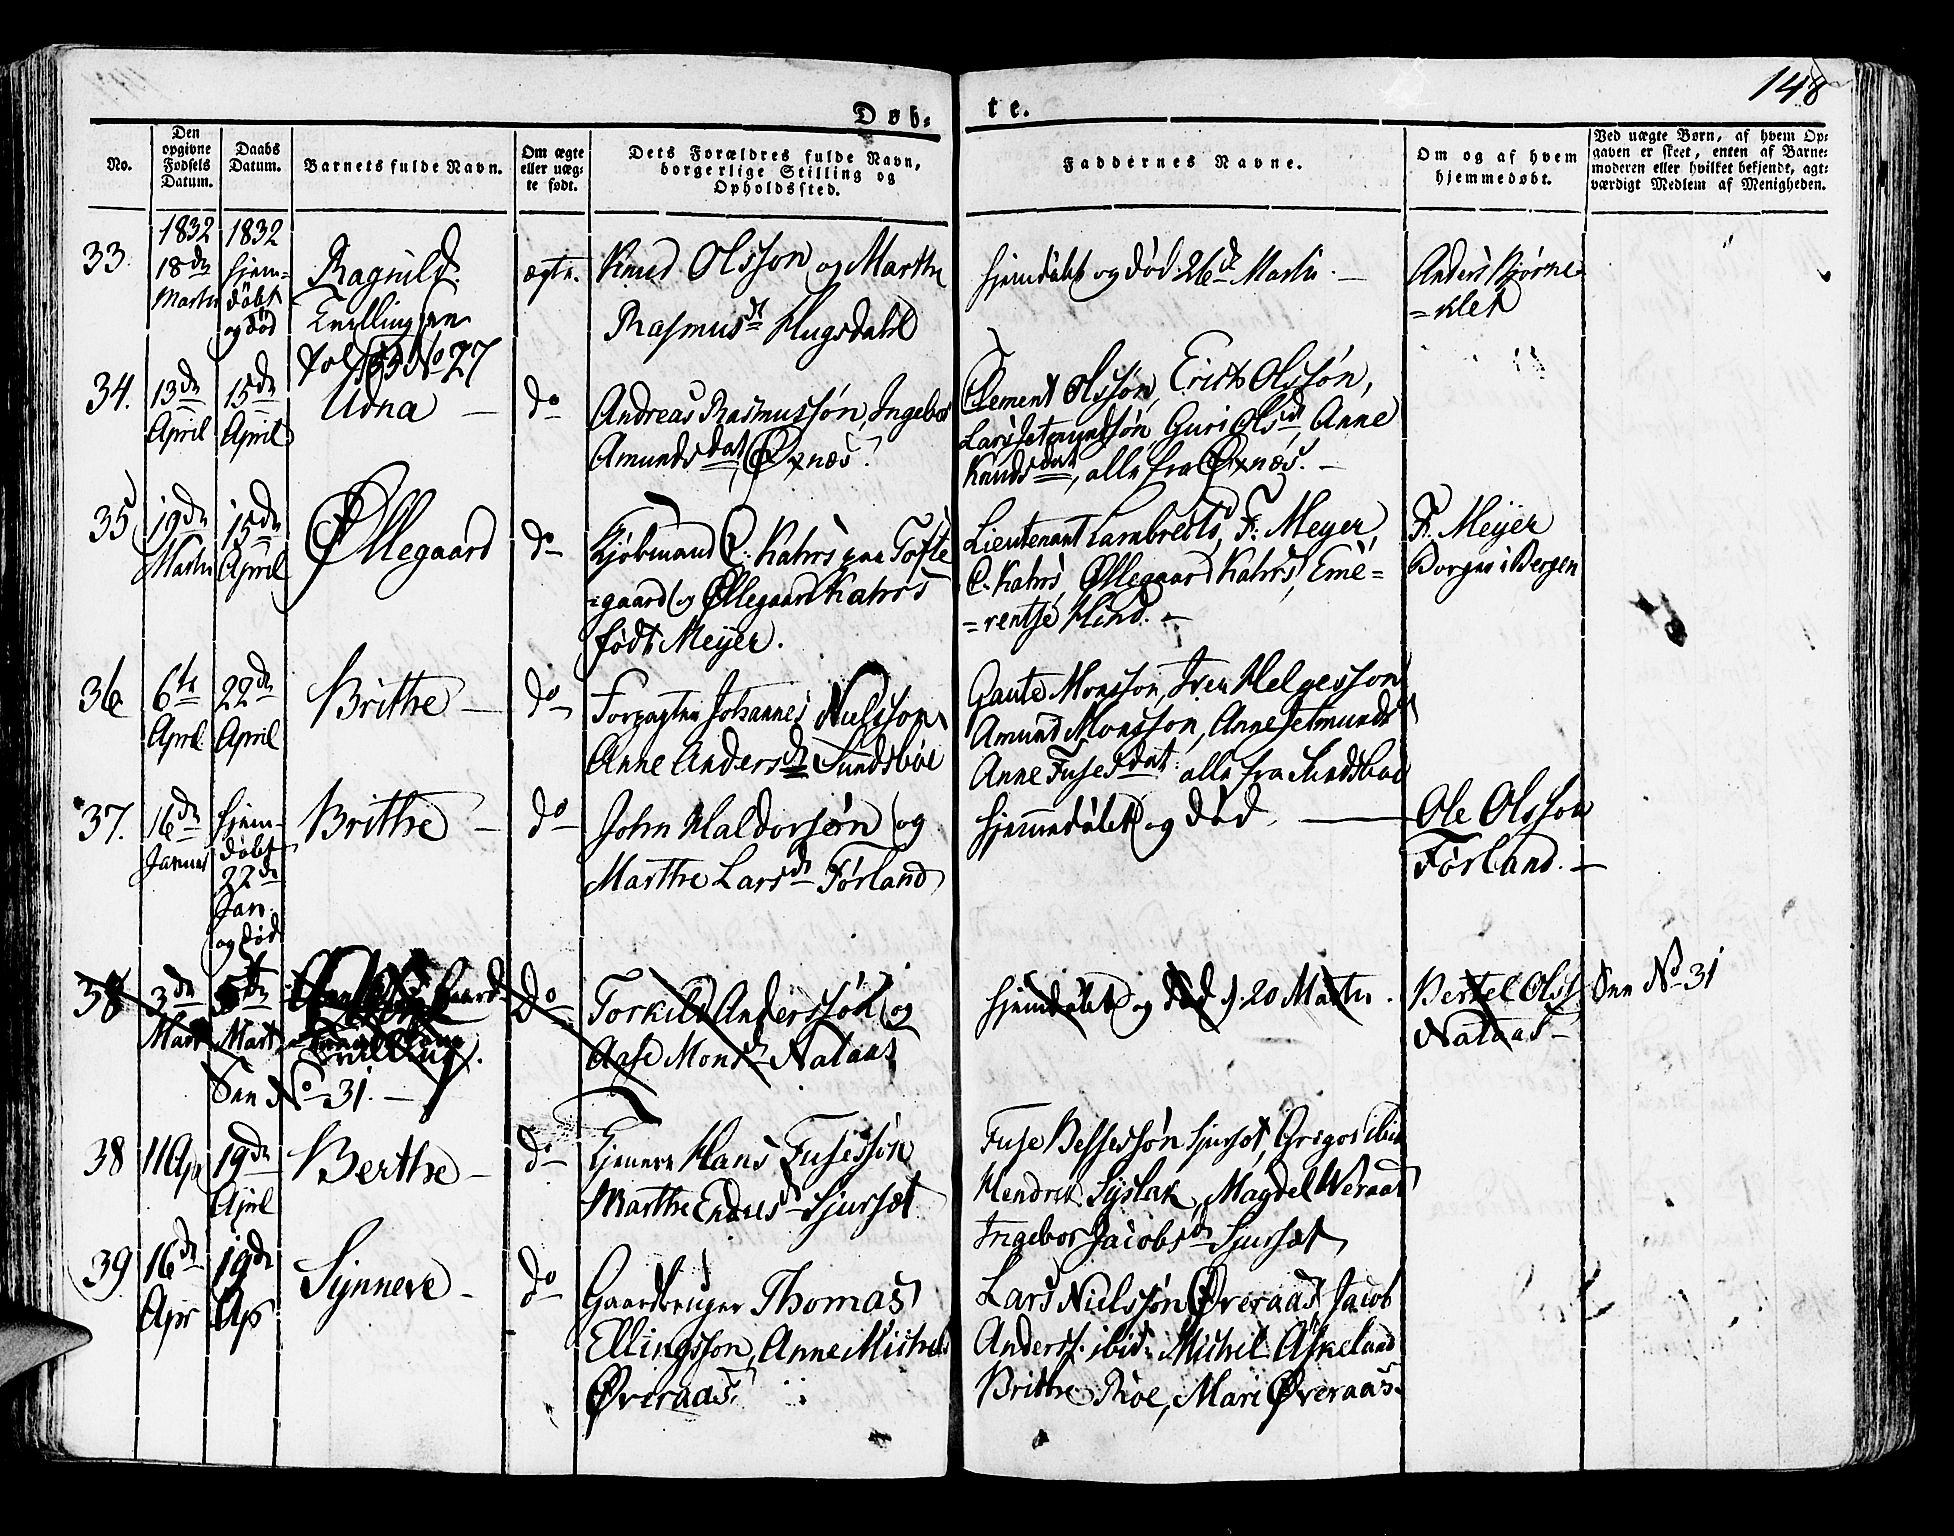 148
Døb-
te.
No.
Den opgivne Fødsels Datum.
Daabs Datum.
Barnets fulde Navn.
Om ægte eller uæg- te født.
Dets Forældres fulde Navn, borgerlige Stilling og Opholdssted.
Faddernes Navne.
Om og af hvem hjemmedøbt.
Ved uægte Børn, af hvem Op- gaven er skeet, enten af Barne- moderen eller hvilket bekjendt, agt- værdigt Medlem af Menigheden.
33.
1832
18de
Martii
1832
hjem-
døbt
og død
Ragnild.
Tvilling
No 27
ægte.
Knud Olsson og Marthe
Rasmusdt Hugsdahl
hjemdøbt og død 26de Martii. —
Anders Bjørne
= klet
34.
13de
April
15de
April
Udna —
do
Andreas Rasmussøn, Ingebor
Amundsdat Øxnæs.
Clement Olssøn, Erick Olssøn,
Lars Jetmundsøn Guri Olsdt, Anne
Knudsdat, alle fra Øxnæs. —
35
19de
Martii
15de
April
Øllegaard
do
Kjøbmand C. Kahrs paa Tofte
= gaard og Øllegaard Kahrs
født Meyer.
Lieutenant Lambrechts, F. Meyer,
C. Kahrs, Øllegaard Kahrs, Eme =
= rentse Hind. —
F. Meyer
Borger i Bergen
36
6te
April
22de
April
Brithe —
do
Forpagter Johannes Nielsson,
Anne Andersdt Sundsbøe
Gaute Monsson, Iver Helgesson
Amund Monsson, Anne Jetmundsdt
Anne Fusedat. alle fra Sundsbøe
37.
16de
Januar
hjem-
døbt
22de
Jan.
og død
Brithe —
do
John Haldorsøn og
Marthe Larsdt Førland
hjemmedøbt og død. —
Ole Olsson
Førland. —
38
3de
Mart
5de
Mart
Tvilling.
do
Torkild Anderssøn og
Aase Monsdt Nataas
hjemdøbt og død d. 20 Martii.
Bertel Olss
Nataas —
See No 31
See No 31. —
38
11 Apr
19de
April
Berthe —
do
Tjenere Hans Fusessøn
Marthe Endresdt Sjursæt
Fuse Bessessøn Sjursæt, Gregor ibid
Hendrik Syslak, Magdel Weraas
Ingebor Jacobsdt Sjursæt
39
16de
Apr
19de
Ap
Synneve —
do
Gaardbruger Thomas
Ellingsson, Anne Michels
Øveraas.
Lars Nielssøn Øveraas, Jacob
Anderss. ibid. Michel Askeland
Brithe Røe, Mari Øveraas.